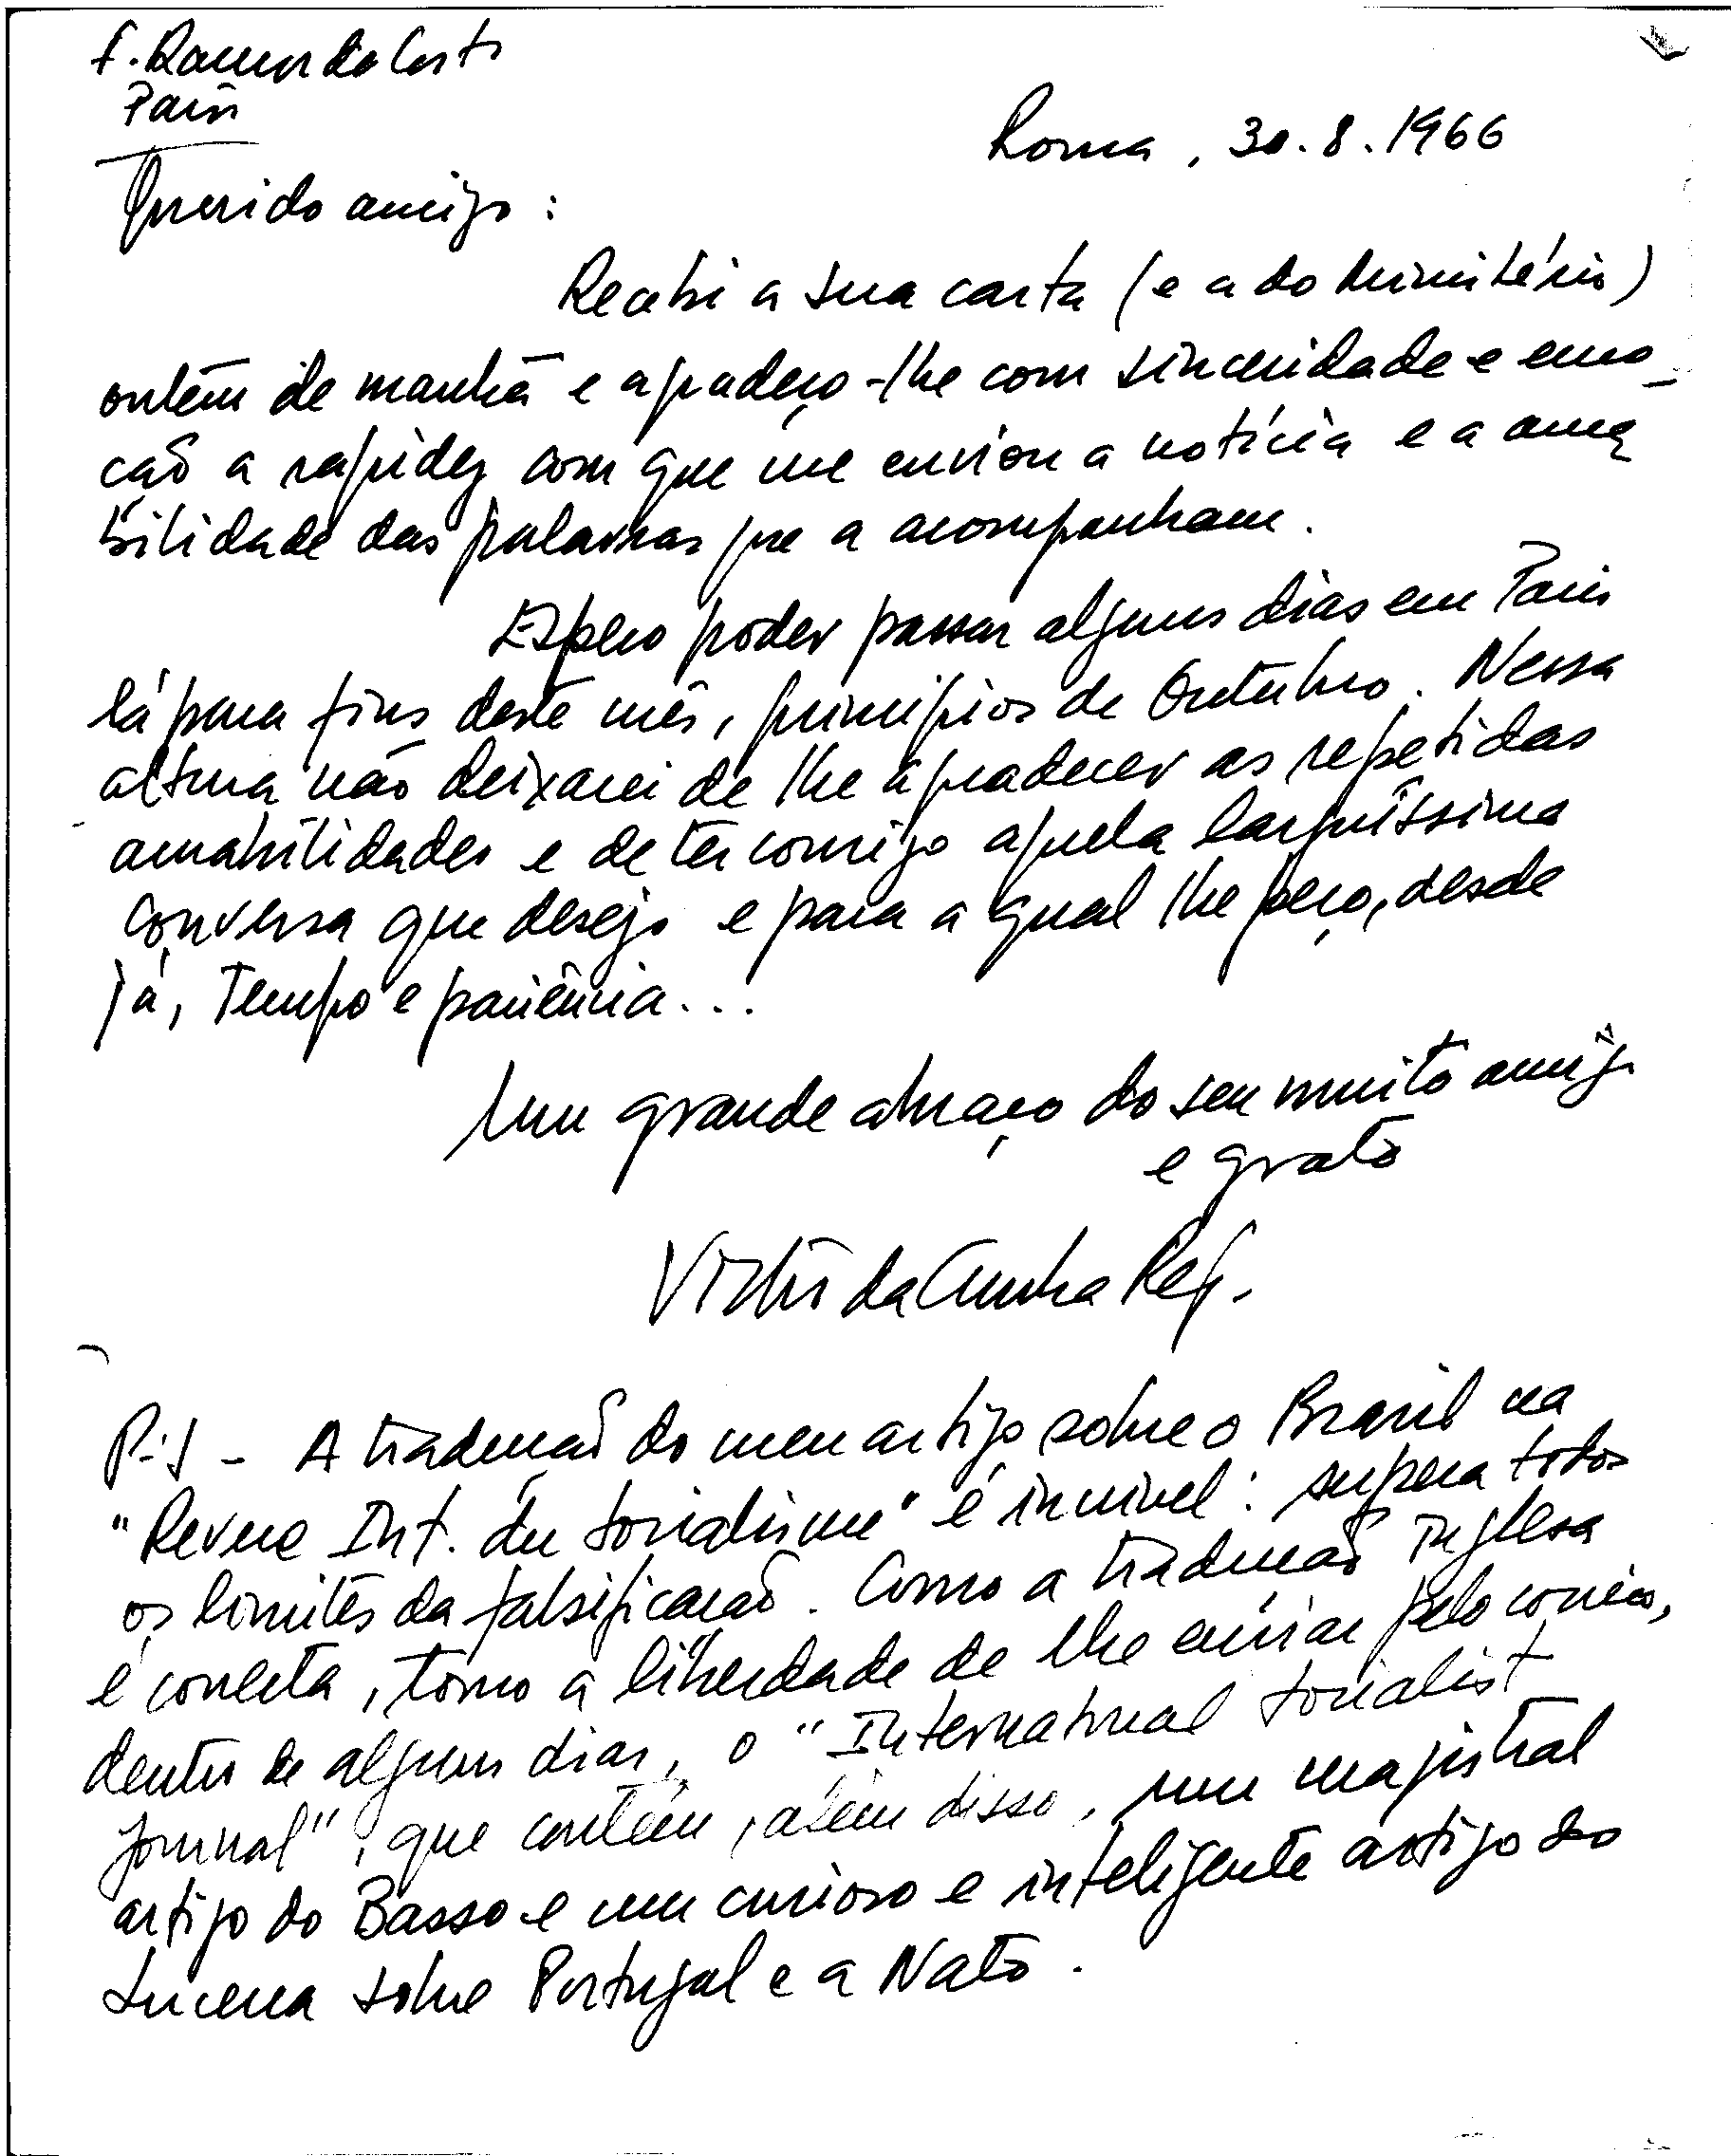 F. Ramos da Costa
Paris
Roma, 30.8.1966
Querido amigo:
Recebi a sua carta (e a do ministério)
ontem de manhã e agradeço-lhe com sinceridade e emo-
ção a rapidez com que me enviou a notícia e a ama
bilidade das palavras que a acompanham.
Espero poder passar alguns dias em Paris
lá para fins deste mês, princípios de Outubro. Nessa
altura não deixarei de lhe agradecer as repetidas
amabilidades e de ter comigo aquela larguíssima
conversa que desejo e para a qual lhe peço, desde
já, tempo e paciência...
Um grande abraço do seu muito amigo
e grato
Victor da Cunha Rego.
P.S - A tradução do meu artigo sobre o Brasil na
"Revue Int. du Socialisme" é incrivel: supera todos
os limites da falsificação. Como a tradução inglesa
é correcta, tomo a liberdade de lhe enviar pelo correio,
dentro de alguns dias, o "International Socialist
Journal", que contém, além disso, um magistral
artigo do Basso e um curioso e inteligente artigo do
Lucena sobre Portugal e a Nato.